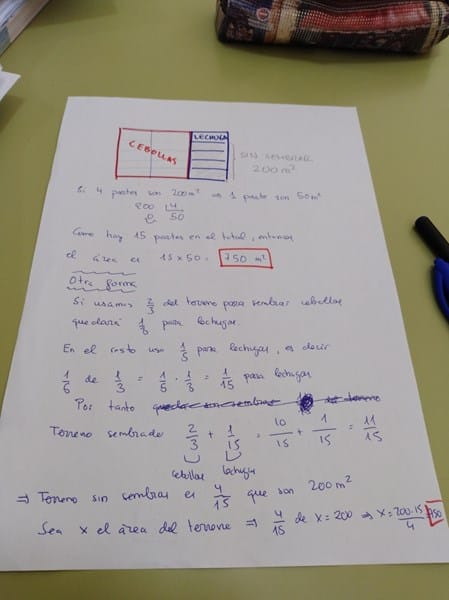 LECHUGA
CEBOLLAS
SIN SEMBRAR
200 m²
Si 4 partes son 200 m² ⇒ 1 parte son 50 m²
200 | 4
0 50
Como hay 15 partes en el total, entonces
el área es 15 x 50 = 750 m²
Otra forma
Si usamos 2/3 del terreno para sembrar cebollas
quedará 1/3 para lechugas.
En el resto uso 1/5 para lechugas, es decir
1/5 de 1/3 = 1/5 · 1/3 = 1/15 para lechugas
Por tanto quedan sin sembrar de terreno
Terreno sembrado 2/3 + 1/15 = 10/15 + 1/15 = 11/15
cebollas lechugas
⇒ Terreno sin sembrar es 4/15 que son 200 m²
Sea x el área del terreno ⇒ 4/15 de x = 200 ⇒ x = 200·15/4 = 750